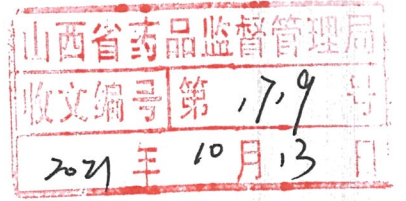 山西省药品监督管理局
收文编号 第 1719 号
2021 年 10 月 13 日